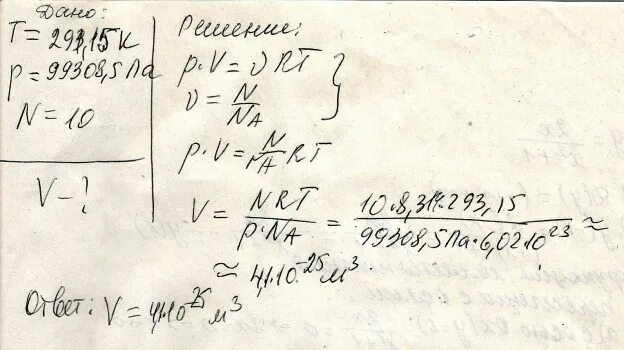 Дано:
T = 293,15 K
p = 99308,5 Па
N = 10
V - ?
Решение:
p·V = υRT
υ = N/NA
p·V = N/NA RT
V = NRT/p·NA = 10·8,31·293,15/99308,5Па·6,02·10^23 ≈
≈ 4,1·10^-25 м^3.
Ответ: V = 4,1·10^-25 м^3